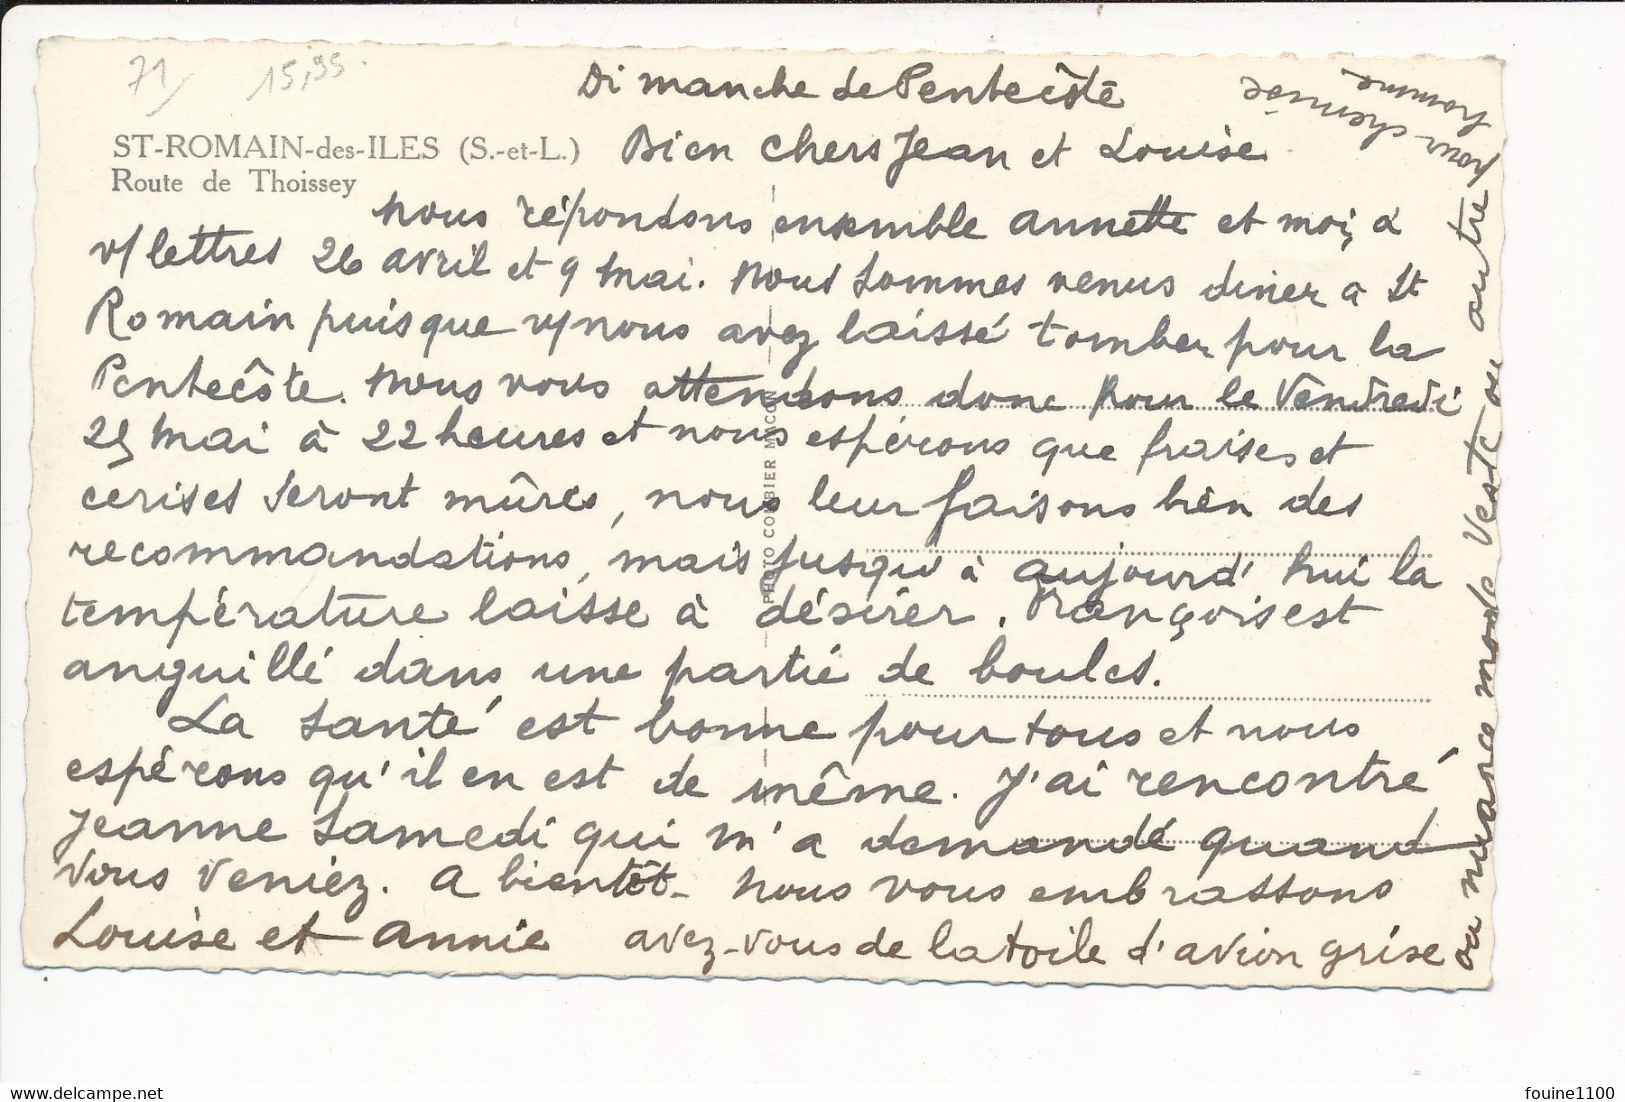 71/ 15,95.
ST-ROMAIN-des-ILES (S.-et-L.)
Route de Thoissey
Dimanche de Pentecôte
Bien chers Jean et Louise
nous répondons ensemble annette et moi, à
v/ lettres 26 avril et 9 mai. nous sommes venus diner à St
Romain puisque v/ nous avez laissé tomber pour la
Pentecôte. nous vous attendons donc pour le Vendredi
25 mai à 22 heures et nous espérons que fraises et
cerises seront mûres, nous leur faisons bien des
recommandations, mais jusqu'à aujourd'hui la
température laisse à désirer. François est
anguillé dans une partie de boules.
La santé est bonne pour tous et nous
espérons qu'il en est de même. J'ai rencontré
Jeanne samedi qui m'a demandé quand
vous veniez. A bientôt - nous vous embrassons
Louise et Annie avez-vous de la toile d'avion grise
ou nuance mode Veste ou autre
pour chemise
homme
PHOTO COMBIER MACON
fouine1100
www.delcampe.net